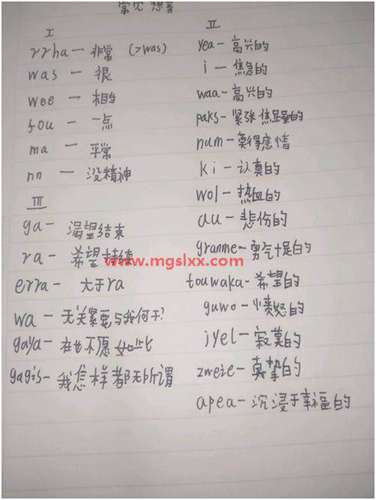 常见 想音
I
rrha — 非常 (>was)
was — 很
wee — 相当
fou — 一点
ma — 平常
nn — 没精神
III
ga — 渴望结束
ra — 希望持续
erra — 大于ra
wa — 无关紧要与我何干?
gaya — 再也不愿如此
gagis — 我怎样都无所谓
II
yea — 高兴的
i — 焦急的
waa — 高兴的
paks — 紧张 焦虑的
num — 莫得感情
ki — 认真的
wol — 热血的
au — 悲伤的
granme — 勇气十足的
touwaka — 希望的
guwo — 愤怒的
iyel — 寂寞的
zweie — 真挚的
apea — 沉浸于幸福的
www.mgslxx.com